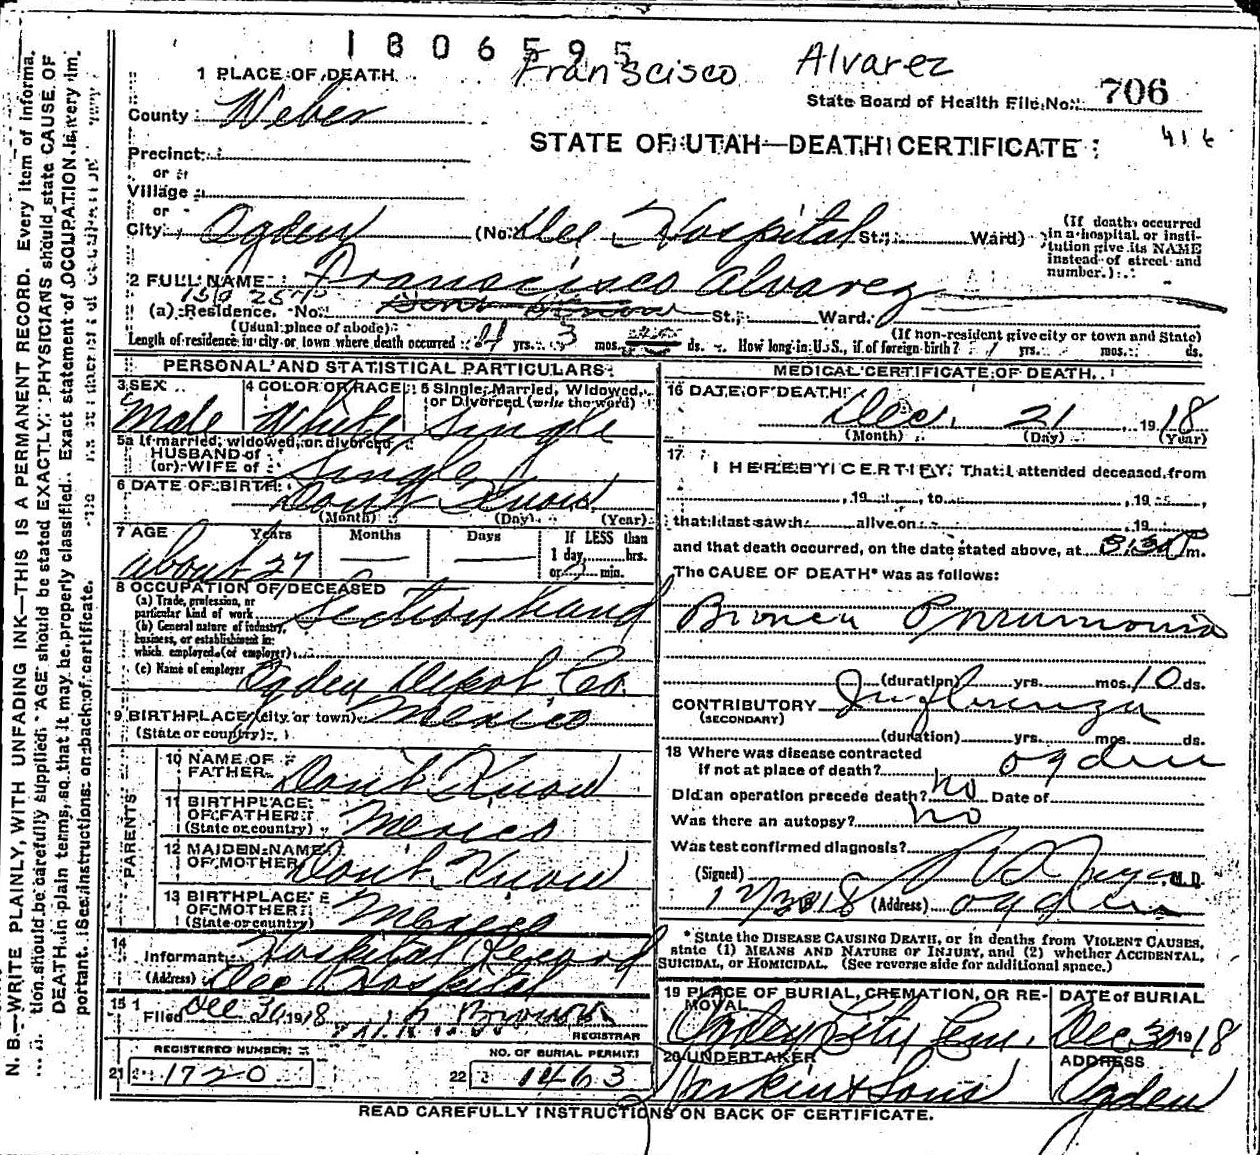 1806595
Franscisco Alvarez
1 PLACE OF DEATH
State Board of Health File No. 706
County Weber
416
STATE OF UTAH—DEATH CERTIFICATE
Precinct
or
Village
or
City Ogden (No. Dee Hospital St.; Ward)
(If death occurred in a hospital or institution give its NAME instead of street and number.)
2 FULL NAME Francisco Alvarez
(a) Residence. No. 150 25th Dont Know St.; Ward.
(Usual place of abode) (If non-resident give city or town and State)
Length of residence in city or town where death occurred yrs. 3 mos. ds. How long in U.S., if of foreign birth? yrs. mos. ds.
PERSONAL AND STATISTICAL PARTICULARS
3 SEX Male
4 COLOR OR RACE White
5 Single, Married, Widowed, or Divorced (write the word) Single
5a If married, widowed, or divorced
HUSBAND of
(or) WIFE of Single
6 DATE OF BIRTH Dont Know
(Month) (Day) (Year)
7 AGE Years Months Days If LESS than
about 27 — — 1 day, hrs.
or min.
8 OCCUPATION OF DECEASED
(a) Trade, profession, or particular kind of work Section hand
(b) General nature of industry, business, or establishment in which employed (or employer)
(c) Name of employer Ogden Depot Co.
9 BIRTHPLACE (city or town) Mexico
(State or country)
PARENTS
10 NAME OF FATHER Don't Know
11 BIRTHPLACE OF FATHER (State or country) Mexico
12 MAIDEN NAME OF MOTHER Don't Know
13 BIRTHPLACE OF MOTHER (State or country) Mexico
14 Informant Hospital Record
(Address) Dee Hospital
15 Filed Dec 30 1918 Brown
REGISTRAR
REGISTERED NUMBER
21 1720
NO. OF BURIAL PERMIT
22 1463
MEDICAL CERTIFICATE OF DEATH
16 DATE OF DEATH Dec. 21 1918
(Month) (Day) (Year)
17 I HEREBY CERTIFY, That I attended deceased from
, 19 , to , 19 ,
that I last saw h alive on , 19
and that death occurred, on the date stated above, at 3:30 P m.
The CAUSE OF DEATH* was as follows:
Bronco Pneumonia
(duration) yrs. mos. 10 ds.
CONTRIBUTORY Influenza
(SECONDARY)
(duration) yrs. mos. ds.
18 Where was disease contracted
if not at place of death? Ogden
Did an operation precede death? no Date of
Was there an autopsy? no
Was test confirmed diagnosis?
(Signed) M.D.
12/30 18 (Address) Ogden
*State the DISEASE CAUSING DEATH, or in deaths from VIOLENT CAUSES,
state (1) MEANS AND NATURE OF INJURY, and (2) whether ACCIDENTAL,
SUICIDAL, or HOMICIDAL. (See reverse side for additional space.)
19 PLACE OF BURIAL, CREMATION, OR REMOVAL Ogden City Cem.
DATE of BURIAL Dec 30 1918
20 UNDERTAKER Larkin & Sons
ADDRESS Ogden
READ CAREFULLY INSTRUCTIONS ON BACK OF CERTIFICATE.
N. B.—WRITE PLAINLY, WITH UNFADING INK—THIS IS A PERMANENT RECORD. Every item of informa-
tion should be carefully supplied. AGE should be stated EXACTLY. PHYSICIANS should state CAUSE OF
DEATH in plain terms, so that it may be properly classified. Exact statement of OCCUPATION is very im-
portant. See instructions on back of certificate.